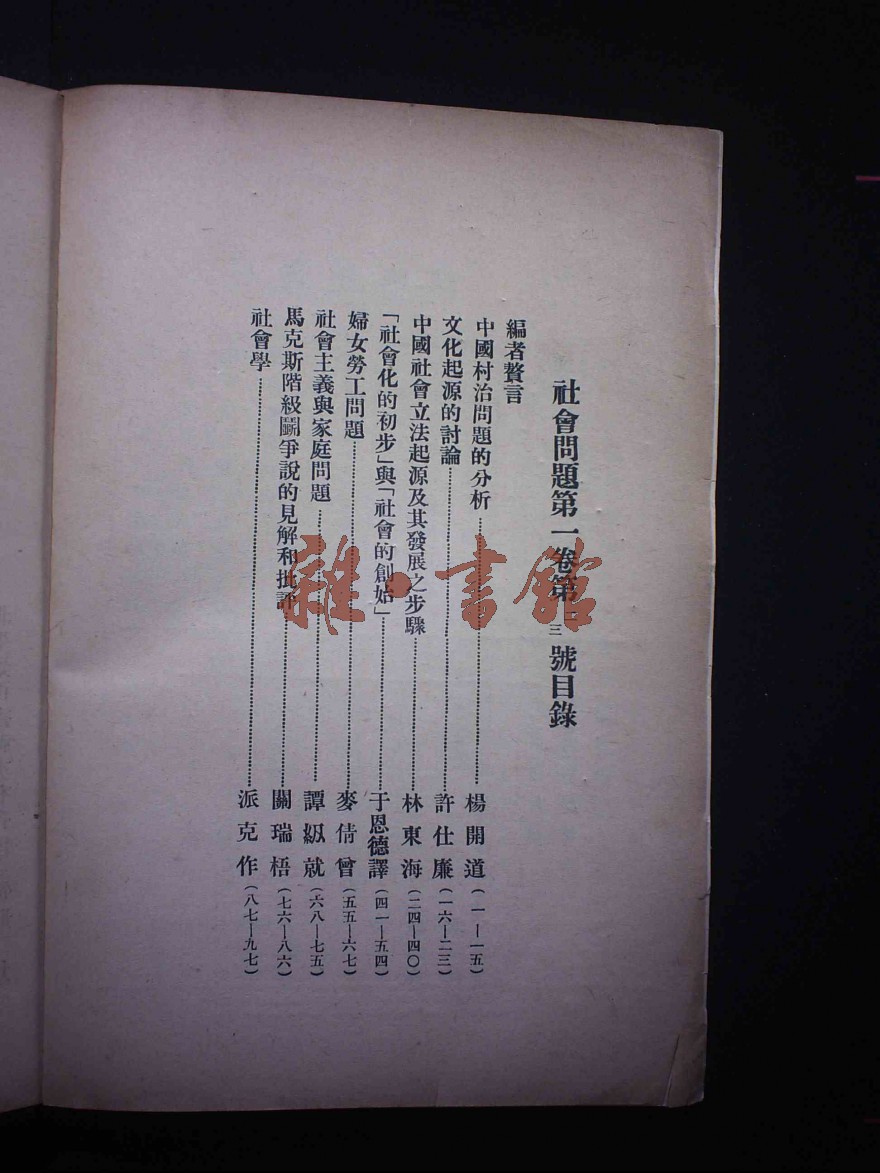 社會問題第一卷第二三號目錄
編者贅言
中國村治問題的分析……楊開道(一—一五)
文化起源的討論……許仕廉(一六—二三)
中國社會立法起源及其發展之步驟……林東海(二四—四〇)
「社會化的初步」與「社會的創始」……于恩德譯(四一—五四)
婦女勞工問題……麥倩曾(五五—六七)
社會主義與家庭問題……譚級就(六八—七五)
馬克斯階級鬬爭說的見解和批評……關瑞梧(七六—八六)
社會學……派克作(八七—九七)
雜·書館